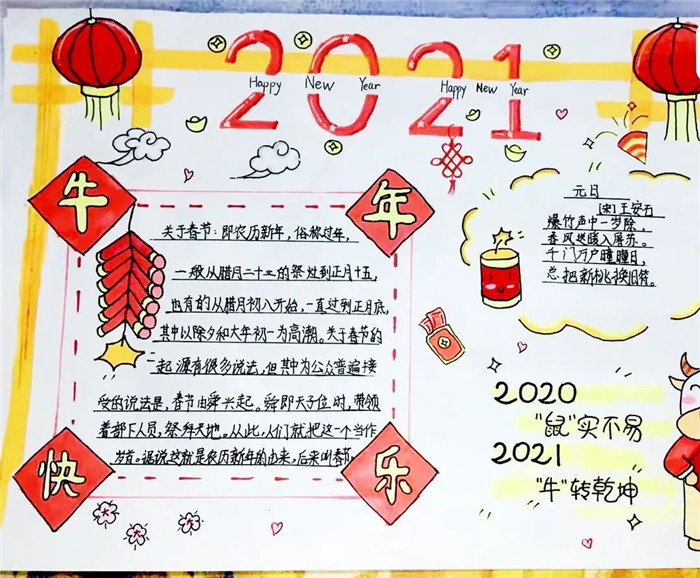 2021
Happy New Year
Happy New Year
牛年
快乐
关于春节:即农历新年,俗称过年,
一般从腊月二十三的祭灶到正月十五,
也有的从腊月初八开始,一直过到正月底,
其中以除夕和大年初一为高潮。关于春节的
起源有很多说法,但其中为公众普遍接
受的说法是,春节由舜兴起。舜即天子位时,带领
着部下人员,祭拜天地。从此,人们就把这一个当作
岁首。据说这就是农历新年的由来,后来叫春节。
元日
[宋]王安石
爆竹声中一岁除,
春风送暖入屠苏。
千门万户曈曈日,
总把新桃换旧符。
2020
"鼠"实不易
2021
"牛"转乾坤